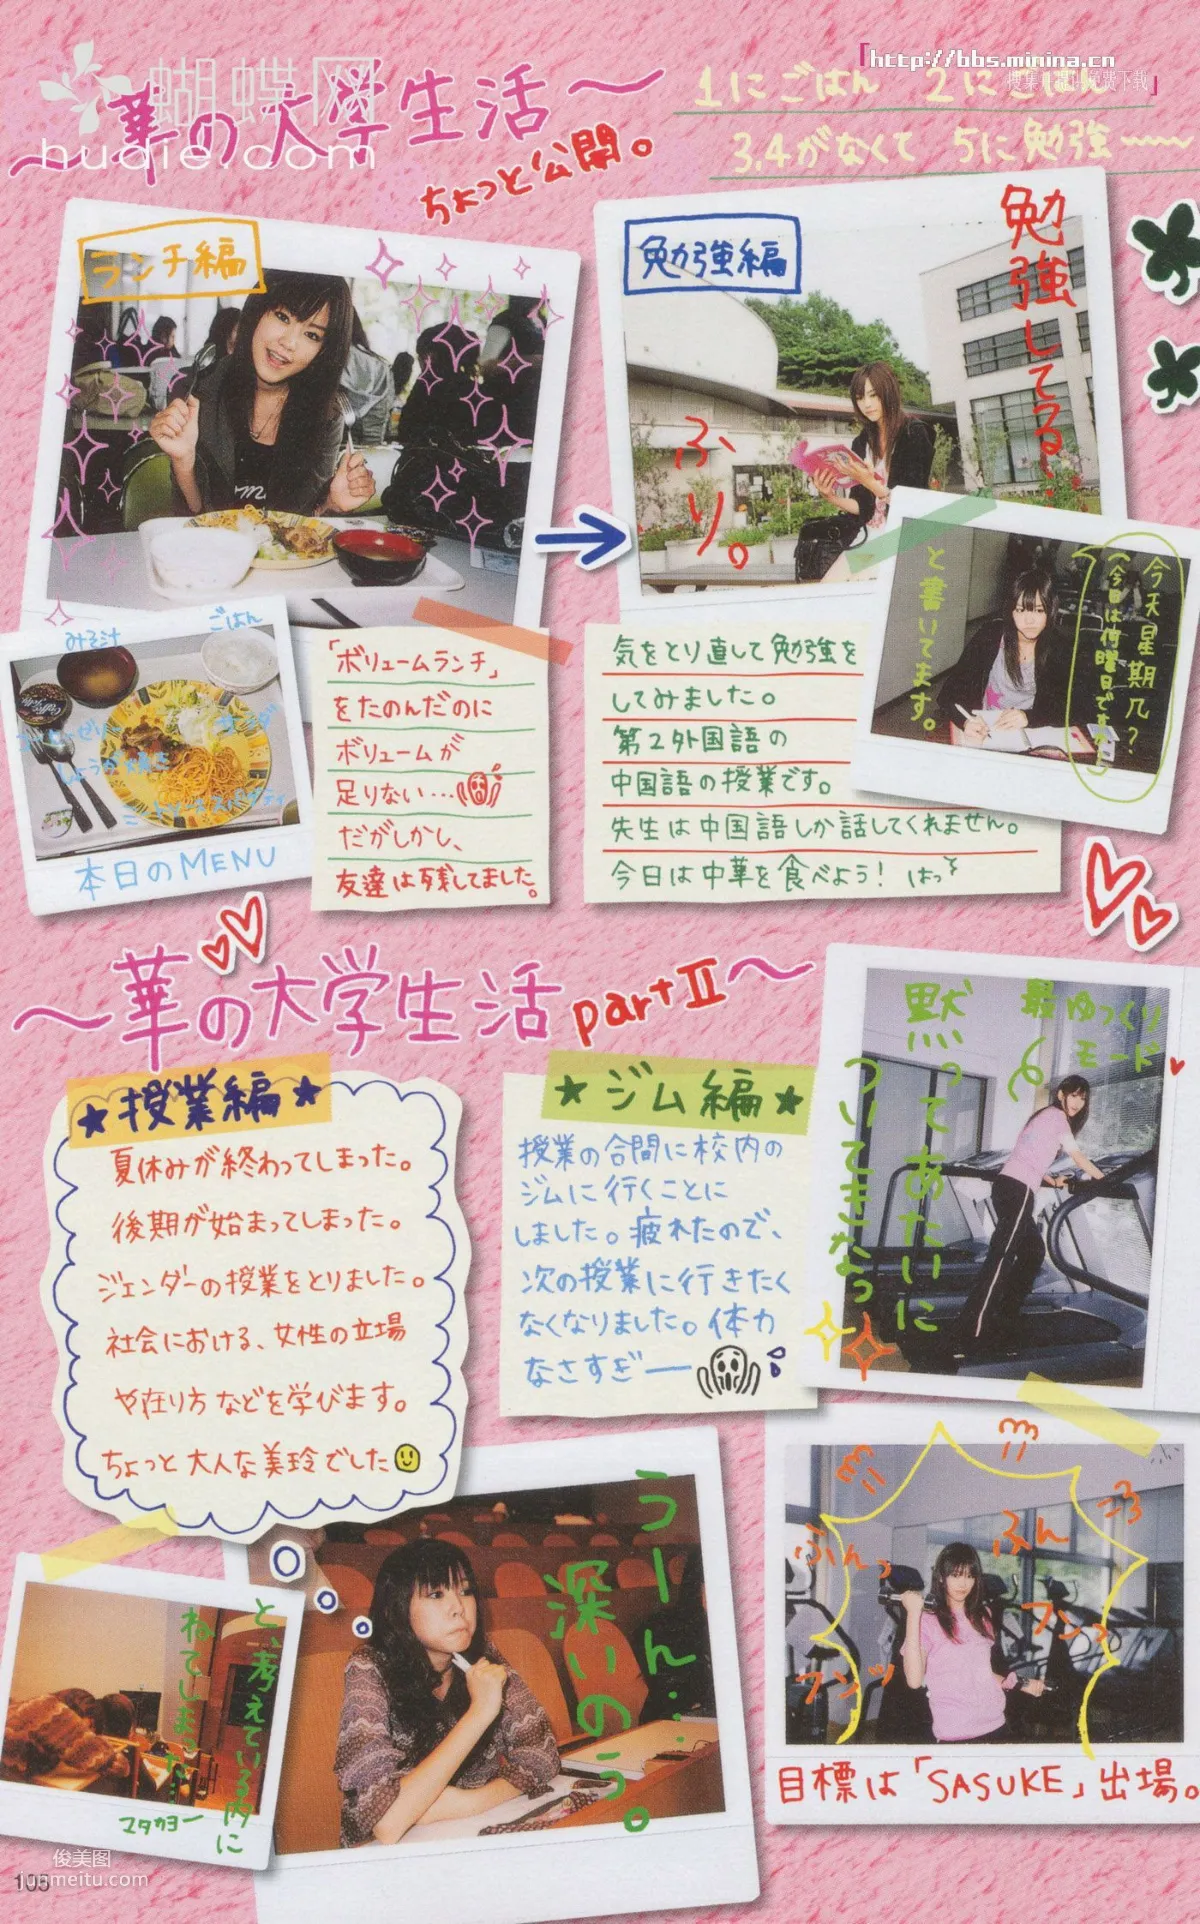 蝴蝶网
hudie.com
「http://bbs.minina.cn
～華の大学生活～
ちょっと公開。
1にごはん 2にごはん
3,4がなくて 5に勉強～～
ランチ編
勉強編
勉強してる…
ふり。
みそ汁
ごはん
コーヒーゼリー
サラダ
しょうが焼き
ミートソーススパゲティ
本日のMENU
「ボリュームランチ」
をたのんだのに
ボリュームが
足りない…
だがしかし、
友達は残してました。
気をとり直して勉強を
してみました。
第2外国語の
中国語の授業です。
先生は中国語しか話してくれません。
今日は中華を食べよう! はっ
今天星期几?
(今日は何曜日ですか)
と書いてます。
～華の大学生活partⅡ～
★授業編★
夏休みが終わってしまった。
後期が始まってしまった。
ジェンダーの授業をとりました。
社会における、女性の立場
や在り方などを学びます。
ちょっと大人な美玲でした
★ジム編★
授業の合間に校内の
ジムに行くことに
しました。疲れたので、
次の授業に行きたく
なくなりました。体力
なさすぎー
最ゆっくり
モード
黙ってあたいに
ついてきなっ
うーん…
深いのう。
と、考えている内に
ねてしまった…
マタカヨー
ふんっ
ふん
フンッ
フンッ
目標は「SASUKE」出場。
105
俊美图
junmeitu.com